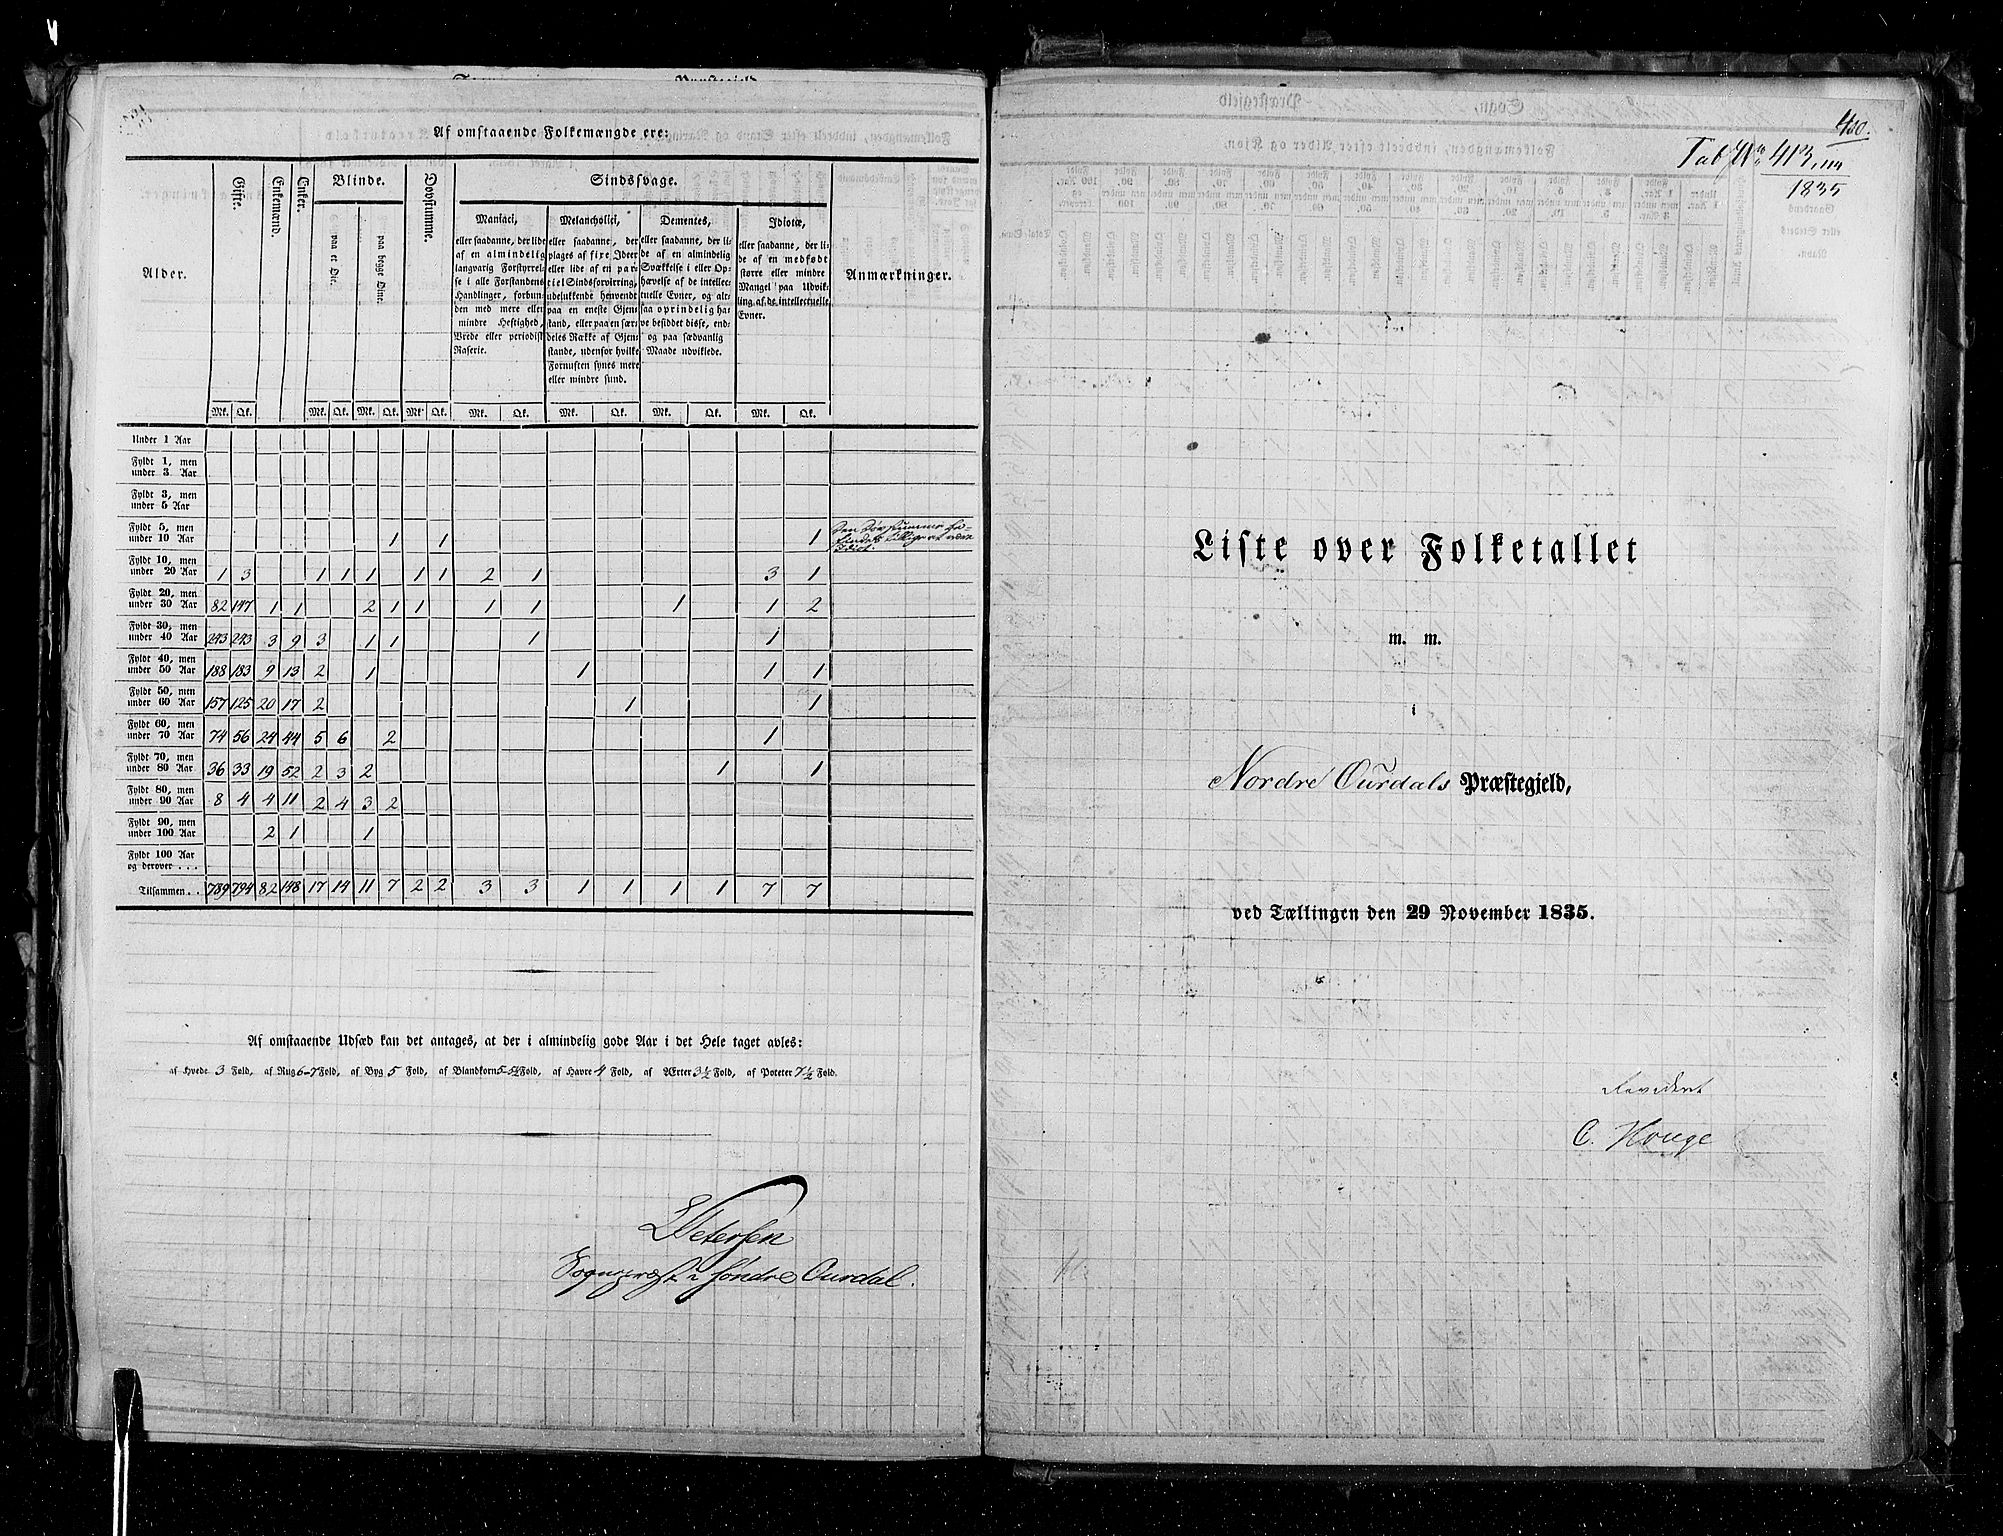 Af omstaaende Folkemængde ere:
Alder. Gifte. Enkemænd. Enker. Blinde. Døvstumme. Sindssvage. Anmærkninger.
paa et Øie. paa begge Øine.
Maniaci,
eller saadanne, der lide
af en almindelig
langvarig Forstyrrel-
se i alle Forstandens
Handlinger, forbun-
den med mere eller
mindre Heftighed,
Vrede eller periodisk
Raserie.
Melancholici,
eller saadanne, der
plages af fixe Ideer
eller lide af en par-
tiel Sindsforvirring,
udelukkende henvendt
paa en eneste Gjen-
stand, eller paa en sær-
deles Række af Gjen-
stande, udenfor hvilke
Fornuften synes mere
eller mindre sund.
Dementes,
eller saadanne, der li-
de af en almindelig
Svækkelse i eller Op-
hævelse af de intellec-
tuelle Evner, og alt-
saa oprindelig ha-
ve besiddet disse, end-
og paa sædvanlig
Maade udviklede.
Idioter,
eller saadanne, der li-
de af en medfødt
større eller mindre
Mangel paa Udvik-
ling af de intellectuelle
Evner.
Mk. Qk. Mk. Qk. Mk. Qk. Mk. Qk. Mk. Qk. Mk. Qk. Mk. Qk. Mk. Qk.
Under 1 Aar
Fyldt 1, men
under 3 Aar
Fyldt 3, men
under 5 Aar
Fyldt 5, men
under 10 Aar 1 1 1
Fyldt 10, men
under 20 Aar 1 3 1 1 1 1 1 2 1 3 1
Fyldt 20, men
under 30 Aar 82 147 1 1 2 1 1 1 1 1 1 2
Fyldt 30, men
under 40 Aar 243 243 3 9 3 1 1 1 1
Fyldt 40, men
under 50 Aar 188 183 9 13 2 1 1 1 1
Fyldt 50, men
under 60 Aar 157 125 20 17 2 1 1
Fyldt 60, men
under 70 Aar 74 56 24 44 5 6 2 1
Fyldt 70, men
under 80 Aar 36 33 19 52 2 3 2 1 1
Fyldt 80, men
under 90 Aar 8 4 4 11 2 4 3 2
Fyldt 90, men
under 100 Aar 2 1 1
Fyldt 100 Aar
og derover . . .
Tilsammen . . 789 794 82 148 17 14 11 7 2 2 3 3 1 1 1 1 7 7
Af omstaaende Udsæd kan det antages, at der i almindelig gode Aar i det Hele taget avles:
af Hvede 3 Fold, af Rug 6-7 Fold, af Byg 5 Fold, af Blandkorn 5-5½ Fold, af Havre 4 Fold, af Ærter 3½ Fold, af Poteter 7½ Fold.
Petersen
Sognepræst i Søndre Ourdal.
400.
Tab. No 413,
1835
Liste over Folketallet
m. m.
i
Nordre Ourdals Præstegjeld,
ved Tællingen den 29 November 1835.
Revideret
C. Houge